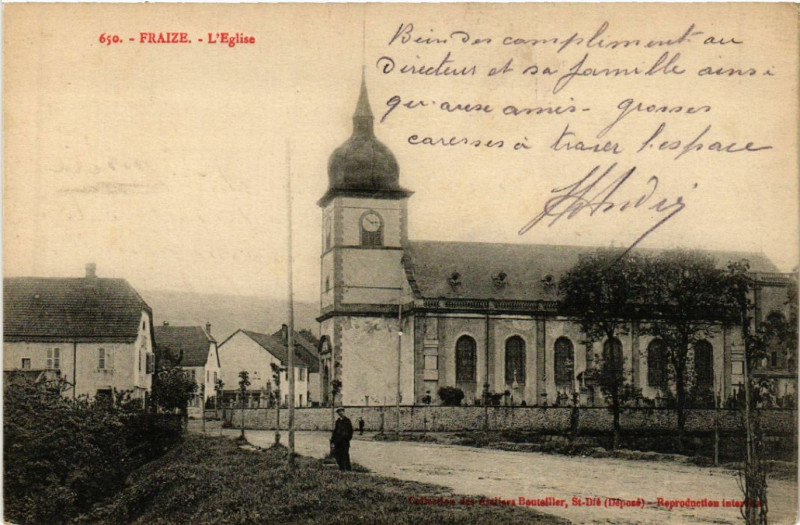 650. - FRAIZE. - L'Eglise
Bein des compliment au
Directeur et sa famille ainsi
qu'aux amis - grosses
caresses à traver l'espace
Collection des Ateliers Bouteiller, St-Dié (Déposé) - Reproduction